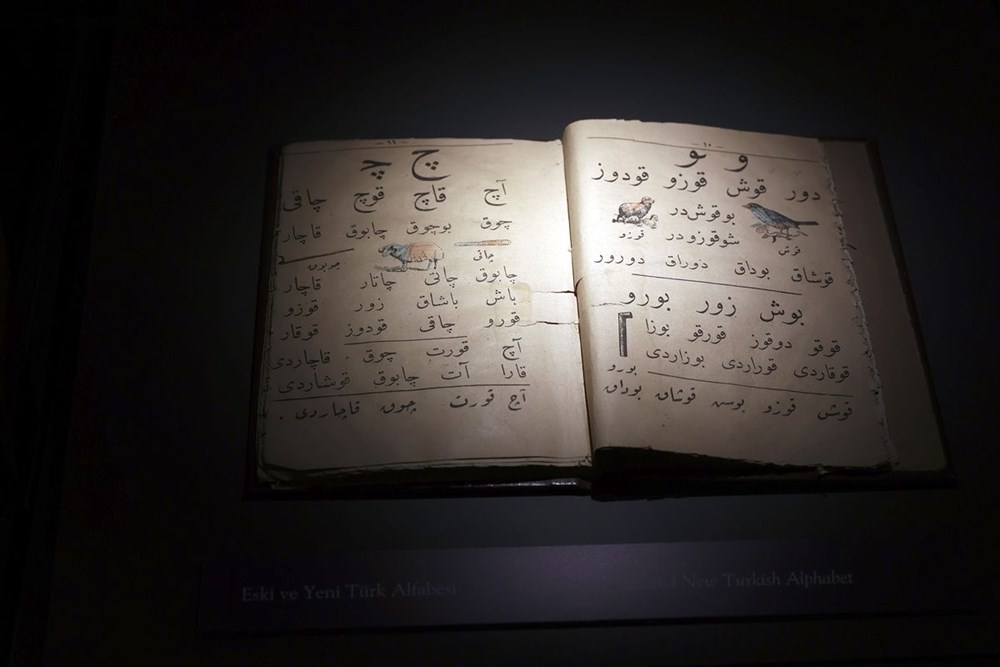 — ١٠ —
و ـو
دور قوش قوزو قودوز
بوقوش‌در
شوقوزودر
قوش
قوزو
قوشاق بوداق دوراق دورور
بوش زور بورو
قوقو دوقوز قورقو بوزا
قوقاردی قوراردی بوزاردی
بورو
قوش قوزو قوشاق بوداق
— ١١ —
چ ـچ
آچ قاچ قوچ چاقی
چوق بوجوق چابوق قاچار
چابوق چاتی چاتار قاچار
باش باشاق زور قوزو
قورو چاقی قودوز قوقار
آچ قورت چوق قاچاردی
قارا آت چابوق قوشاردی
آچ قورت چوق قاچاردی .
Eski ve Yeni Türk Alfabesi
New Turkish Alphabet